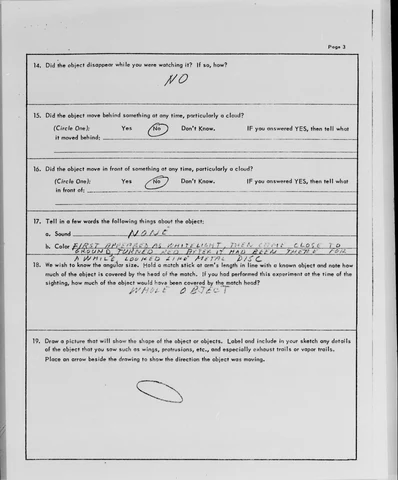 Page 3
14. Did the object disappear while you were watching it? If so, how?
NO
15. Did the object move behind something at any time, particularly a cloud?
(Circle One): Yes No Don't Know. IF you answered YES, then tell what
it moved behind:
16. Did the object move in front of something at any time, particularly a cloud?
(Circle One): Yes No Don't Know. IF you answered YES, then tell what
in front of:
17. Tell in a few words the following things about the object:
a. Sound NONE
b. Color FIRST APPEARED AS WHITE LIGHT, THEN CAME CLOSE TO
GROUND TURNED RED AFTER IT HAD BEEN THERE FOR
A WHILE, LOOKED LIKE METAL DISC
18. We wish to know the angular size. Hold a match stick at arm's length in line with a known object and note how
much of the object is covered by the head of the match. If you had performed this experiment at the time of the
sighting, how much of the object would have been covered by the match head?
WHOLE OBJECT
19. Draw a picture that will show the shape of the object or objects. Label and include in your sketch any details
of the object that you saw such as wings, protrusions, etc., and especially exhaust trails or vapor trails.
Place an arrow beside the drawing to show the direction the object was moving.